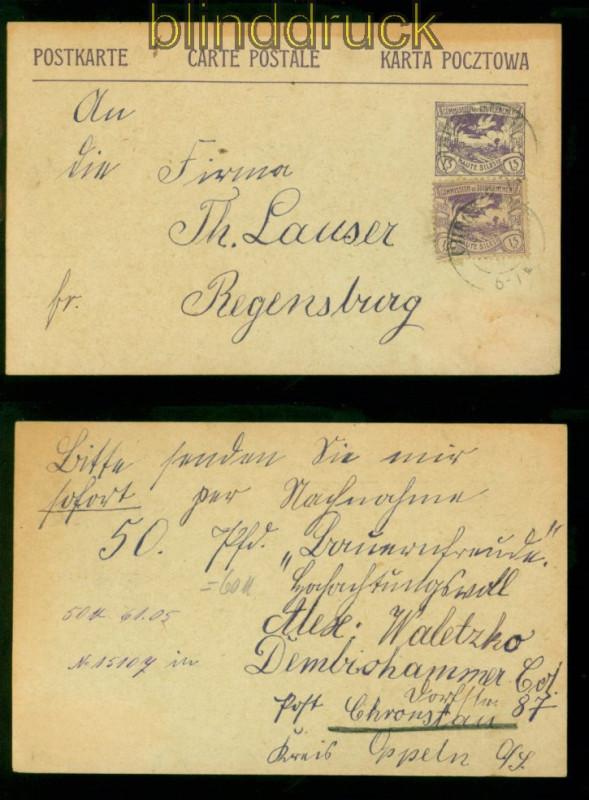 blinddruck
POSTKARTE CARTE POSTALE KARTA POCZTOWA
An
die Firma
Th. Lauser
fr. Regensburg
COMMISSION DE GOUVERNEMENT
15 HAUTE SILESIE 15
COMMISSION DE GOUVERNEMENT
15 HAUTE SILESIE 15
6-7
Bitte senden Sie mir
sofort per Nachnahme
50. Pfd. „Bauernfreude."
Hochachtungsvoll
Alex. Waletzko
50 61.05
No 15107 in Dembiohammer Col.
Dorfstr. 87
Post Chronstau
Kreis Oppeln O/S.